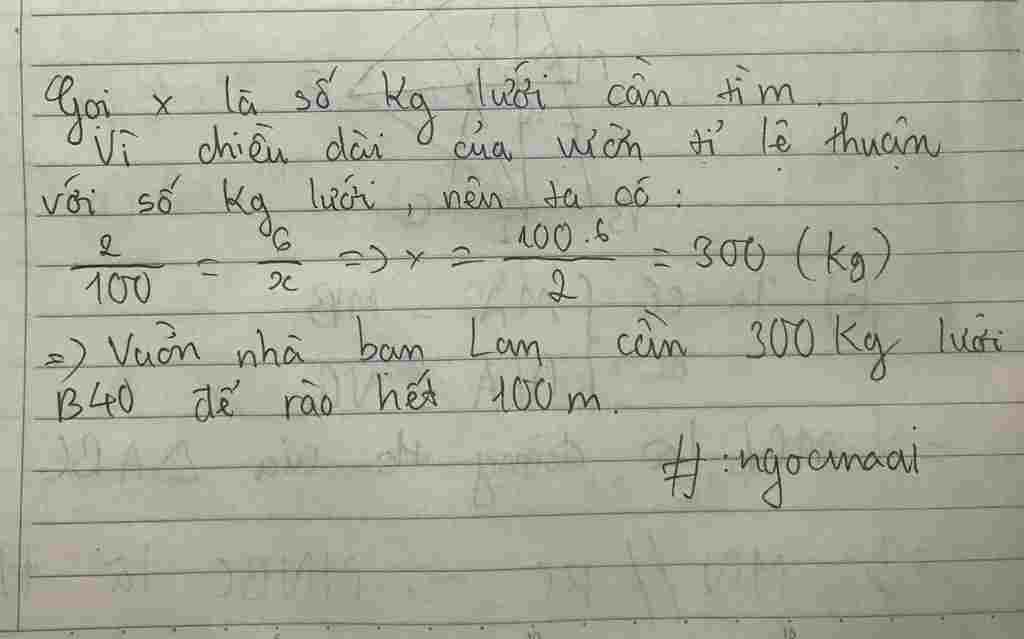 Gọi x là số kg lưới cần tìm.
Vì chiều dài của vườn tỉ lệ thuận
với số kg lưới, nên ta có:
2/100 = 6/x => x = 100.6/2 = 300 (kg)
=> Vườn nhà bạn Lan cần 300 kg lưới
B40 để rào hết 100m.
#:ngocmaai